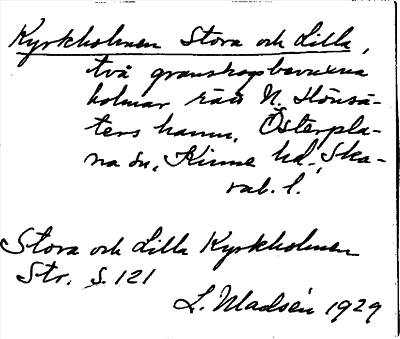 Kyrkholmen Stora och Lilla,
två granskogsbevuxna
holmar rätt N. Hönsä-
ters hamn, Österpla-
na sn, Kinne hd., Ska-
rab. l.
Stora och Lilla Kyrkholmen
Str. S. 121
L. Madsén 1929